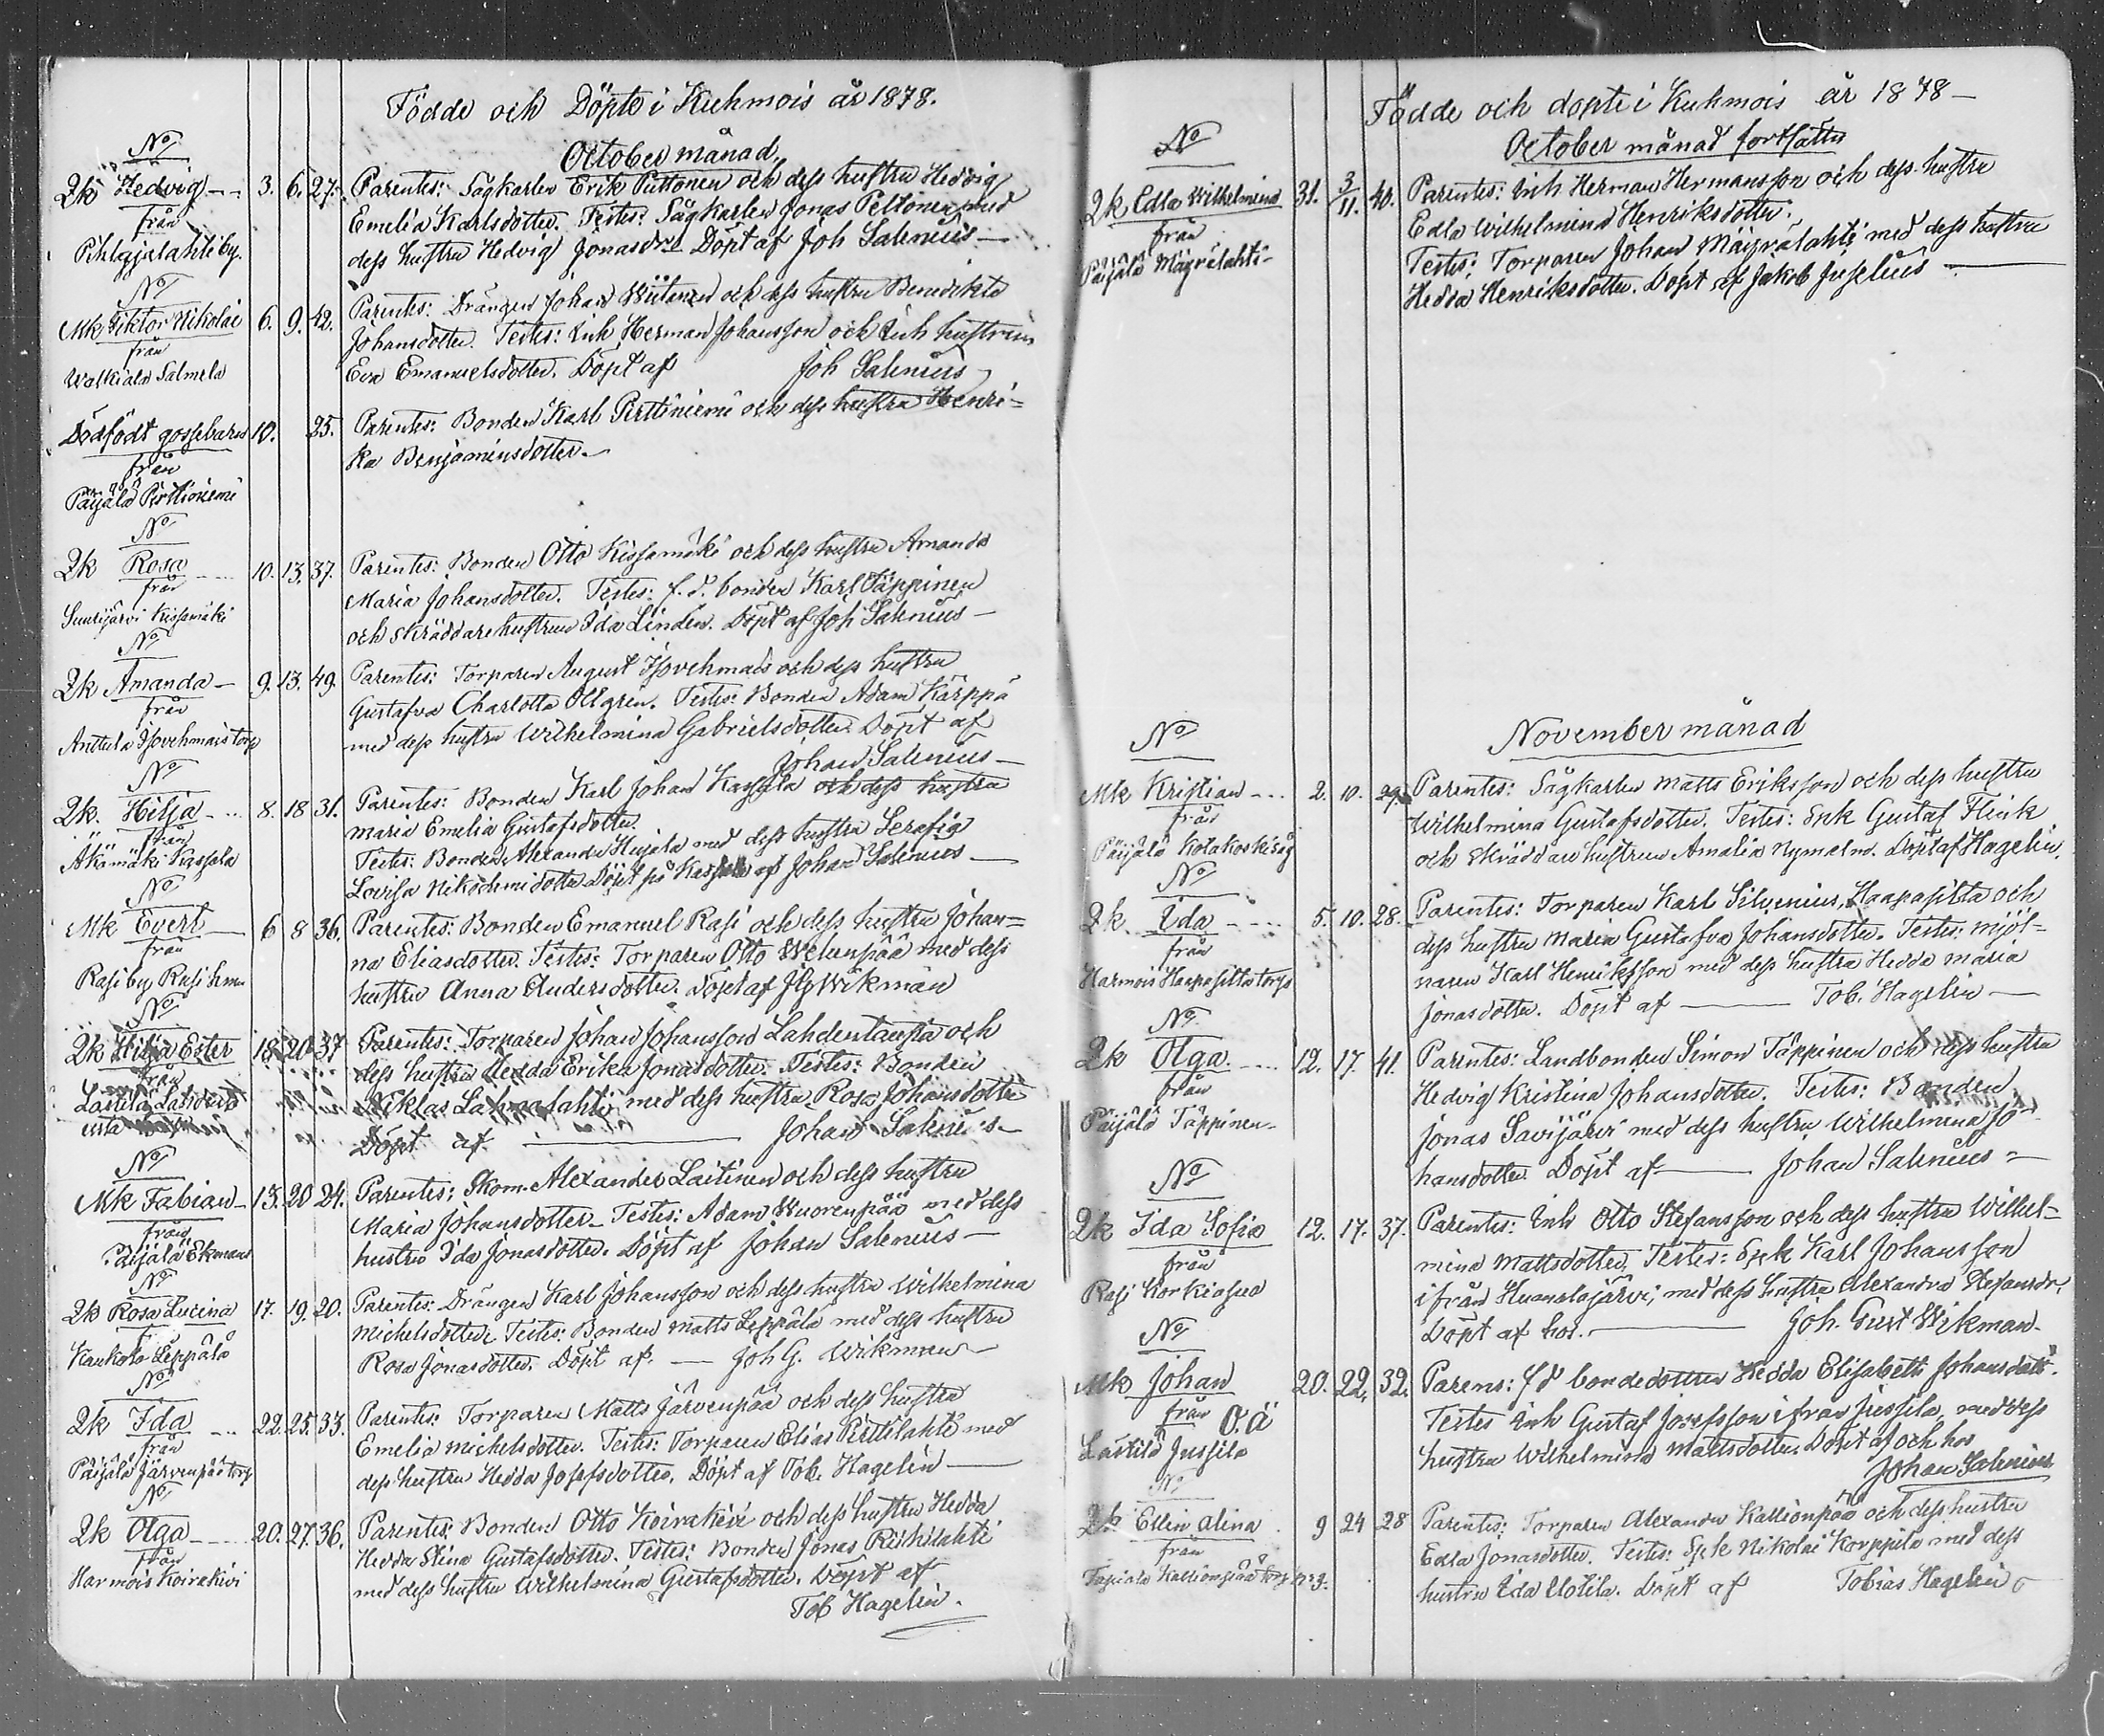 Födde och Döpte i Kuhmois år 1878.
October månad.
No
Qk Hedvig 3. 6. 27. Parentes: Sågkarlen Erik Puttonen och dess hustru Hedvig
från Emelia Karlsdotter. Testes: Sågkarlen Jonas Peltonen med
Pihlajalahti by. dess hustru Hedvig Jonasdr Döpt af Joh Salenius
No
Mk Viktor Nikolai 6. 9. 42. Parentes: Drängen Johan Wiitanen och dess hustru Benedikta
från Johansdotter. Testes: Inh Herman Johansson och Inh hustrun
Walkiala Salmela Eva Emanuelsdotter. Döpt af Joh Salenius
Dödfödt gossebarn 10. 25. Parentes: Bonden Karl Pirttiniemi och dess hustru Henri=
från ka Benjaminsdotter.
Päijälä Pirttiniemi
No
Qk Rosa 10. 13. 37. Parentes: Bonden Otto Kissamäki och dess hustru Amanda
från Maria Johansdotter. Testes: f.d. bonden Karl Täppinen
Kissamäki och skräddarehustrun Ida Linden. Döpt af Joh Salenius
No
Qk Amanda 9. 13. 49. Parentes: Torparen August Isovehmais och dess hustru
från Gustafva Charlotta Ollgrén. Testes: Bonden Adam Kärppä
Anttula Isovehmais torp med dess hustru Wilhelmina Gabrielsdotter. Döpt af
Johan Salenius
No
Qk. Hilja 8. 18 31. Parentes: Bonden Karl Johan Kassala och dess hustru
från Maria Emelia Gustafsdotter.
Kassala Testes: Bonden Alexander med dess hustru Serafia
Lovisa Döpt på af Johan Salenius
No
Mk Evert 6 8 36. Parentes: Bonden Emanuel Rasi och dess hustru Johan=
från na Eliasdotter. Testes: Torparen Otto med dess
Rasi by Rasi hmn hustru Anna Andersdotter. Döpt af JG Wikman
No
Qk Hilja Ester 18. 20 37 Parentes: Torparen Johan Johansson och
från dess hustru Hedda Erika Jonasdotter. Testes: Bonden
Lästilä Niklas med dess hustru Rosa Johansdotter
Döpt af Johan Salenius
No
Mk Fabian 13. 20 24. Parentes: Skom. Alexander Laitinen och dess hustru
från Maria Johansdotter. Testes: Adam Wuorenpää med dess
Päijälä Ekmans hustru Ida Jonasdotter. Döpt af Johan Salenius
No
Qk Rosa Lucina 17. 19. 20. Parentes: Drängen Karl Johansson och dess hustru Wilhelmina
från Michelsdotter. Testes: Bonden Matts Leppälä med dess hustru
Kaukola Leppälä Rosa Jonasdotter. Döpt af. Joh G. Wikman
No
Qk Ida 22. 25. 33. Parentes: Torparen Matts Järvenpää och dess hustru
från Emelia Michelsdotter. Testes: Torparen Elias Pirttilahti med
Päijälä Järvenpää torp dess hustru Hedda Josefsdotter. Döpt af Tob. Hagelin
No
Qk Olga 20. 27. 36. Parentes: Bonden Otto Koirakivi och dess hustru Hedda
från Hedda Stina Gustafsdotter. Testes: Bonden Jonas Riihilahti
Harmois Koirakivi med dess hustru Wilhelmina Gustafsdotter. Döpt af
Tob Hagelin.
Födde och döpte i Kuhmois år 1878
October månad fortsättes
No
Qk Edla Wilhelmina 31. 3/11. 40. Parentes: Inh Herman Hermansson och dess hustru
från Edla Wilhelmina Henriksdotter.
Päijälä Mäyrälahti Testes: Torparen Johan Mäyrälahti med dess hustru
Hedda Henriksdotter. Döpt af Jakob Juselius
November månad
No
Mk Kristian 2. 10. 29. Parentes: Sågkarlen Matts Eriksson och dess hustru
från Wilhelmina Gustafsdotter. Testes: Enk Gustaf Flink
Päijälä Kolakoski såg och skräddare hustrun Amalia Nymalm. Döpt af Hagelin.
No
Qk. Ida 5. 10. 28. Parentes: Torparen Karl Silvenius Haapasilta och
från dess hustru Maria Gustafva Johansdotter. Testes: mjöl=
Harmois Haapasilta torp naren Karl Henriksson med dess hustru Hedda Maria
Jonasdotter. Döpt af Tob. Hagelin
No
Qk Olga 12. 17. 41. Parentes: Landbonden Simon Täppinen och dess hustru
från Hedvig Kristina Johansdotter. Testes: Bonden
Päijälä Täppinen Jonas Savijärvi med dess hustru Wilhelmina Jo=
hansdotter. Döpt af Johan Salenius
No
Qk Ida Sofia 12. 17. 37. Parentes: Inh Otto Stefansson och dess hustru Wilhel=
från mina Mattsdotter. Testes: Karl Johansson
Rasi Korkiasuo ifrån med dess hustru Alexandra Stefansdr.
Döpt af hos. Joh. Gust Wikman.
No
Mk Johan 20. 22. 32. Parens: fd bondedottren Hedda Elisabeth Johansdott.
från O.ä Testes Inh Gustaf Josefsson ifrån Jussila, med dess
Lästilä Jussila hustru Wilhelmina Mattsdotter. Döpt af och hos
Johan Salenius
No
Qk Ellin Alina 9 24 28 Parentes: Torparen Alexander Kallionpää och dess hustru
från Edla Jonasdotter. Testes: Nikolai Korppila med dess
Tapiala Kallionpää torp No 3. hustru Ida Uotila. Döpt af Tobias Hagelin